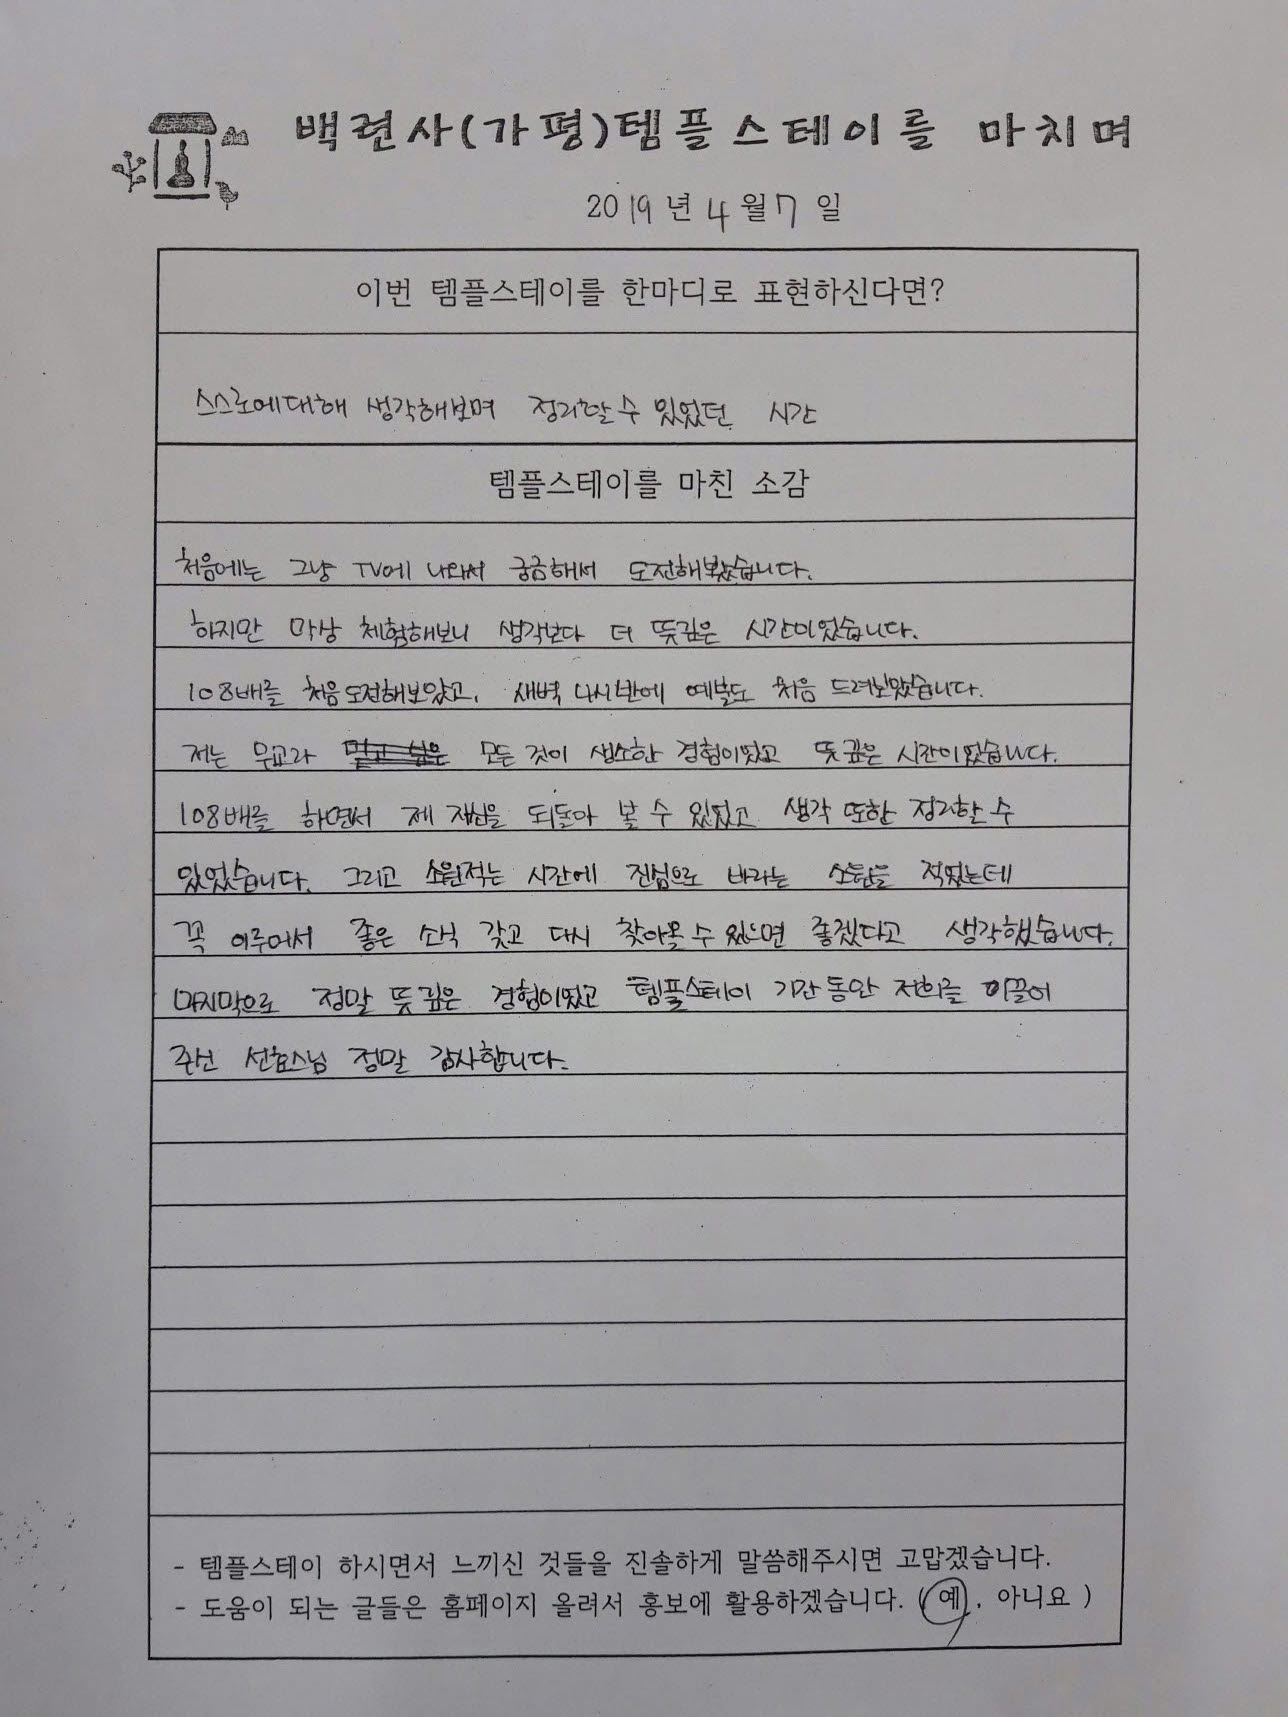 백련사(가평)템플스테이를 마치며
2019년 4월 7일
이번 템플스테이를 한마디로 표현하신다면?
스스로에대해 생각해보며 정리할수 있었던 시간
템플스테이를 마친 소감
처음에는 그냥 TV에 나와서 궁금해서 도전해봤습니다.
하지만 막상 체험해보니 생각보다 더 뜻깊은 시간이었습니다.
108배를 처음도전해보았고, 새벽 네시반에 예불도 처음 드려보았습니다.
저는 무교라 모든 것이 생소한 경험이었고 뜻깊은 시간이었습니다.
108배를 하면서 제 자신을 되돌아 볼 수 있었고 생각 또한 정리할수
있었습니다. 그리고 소원적는 시간에 진심으로 바라는 소원을 적었는데
꼭 이루어서 좋은 소식 갖고 다시 찾아올수 있으면 좋겠다고 생각했습니다.
마지막으로 정말 뜻깊은 경험이었고 템플스테이 기간동안 저희를 이끌어
주신 선효스님 정말 감사합니다.
- 템플스테이 하시면서 느끼신 것들을 진솔하게 말씀해주시면 고맙겠습니다.
- 도움이 되는 글들은 홈페이지 올려서 홍보에 활용하겠습니다. ( 예, 아니요 )